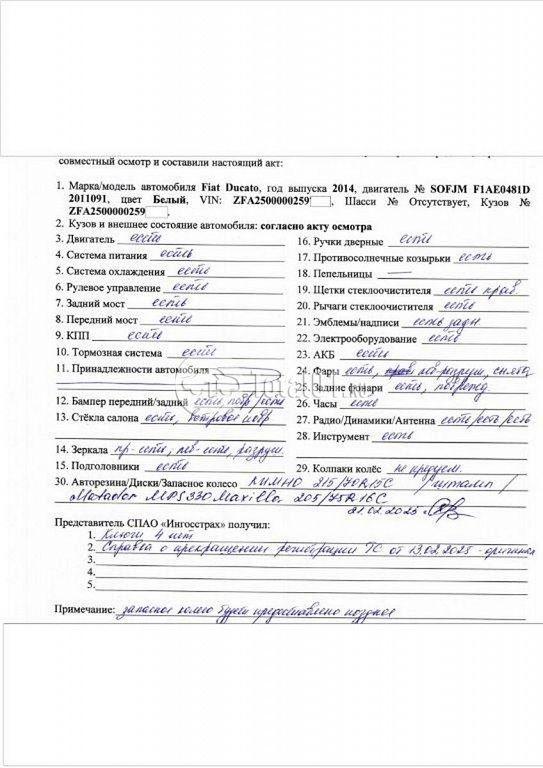 совместный осмотр и составили настоящий акт:
1. Марка/модель автомобиля Fiat Ducato, год выпуска 2014, двигатель № SOFJM F1AE0481D
2011091, цвет Белый, VIN: ZFA2500000259, Шасси № Отсутствует, Кузов №
ZFA2500000259.
2. Кузов и внешнее состояние автомобиля: согласно акту осмотра
3. Двигатель есть
4. Система питания есть
5. Система охлаждения есть
6. Рулевое управление есть
7. Задний мост есть
8. Передний мост есть
9. КПП есть
10. Тормозная система есть
11. Принадлежности автомобиля
12. Бампер передний/задний есть, /есть
13. Стёкла салона есть,
14. Зеркала пр-есть, лев-есть, разруш.
15. Подголовники есть
16. Ручки дверные есть
17. Противосолнечные козырьки есть
18. Пепельницы —
19. Щетки стеклоочистителя есть прав.
20. Рычаги стеклоочистителя есть
21. Эмблемы/надписи есть задн.
22. Электрооборудование есть
23. АКБ есть
24. Фары есть, лев-разруш,
25. Задние фонари есть, поврежд.
26. Часы есть
27. Радио/Динамики/Антенна есть/есть/есть
28. Инструмент есть
29. Колпаки колёс не предусм.
30. Авторезина/Диски/Запасное колесо КUMHO 215/70R15C /штамп/
Matador MPS330 Maxilla 205/75R16C
21.02.2025
Представитель СПАО «Ингосстрах» получил:
1. Ключи 4 шт
2. Справка о прекращении регистрации ТС от 13.02.2025 - оригинал
3.
4.
5.
Примечание: запасное колесо будет предоставлено позднее